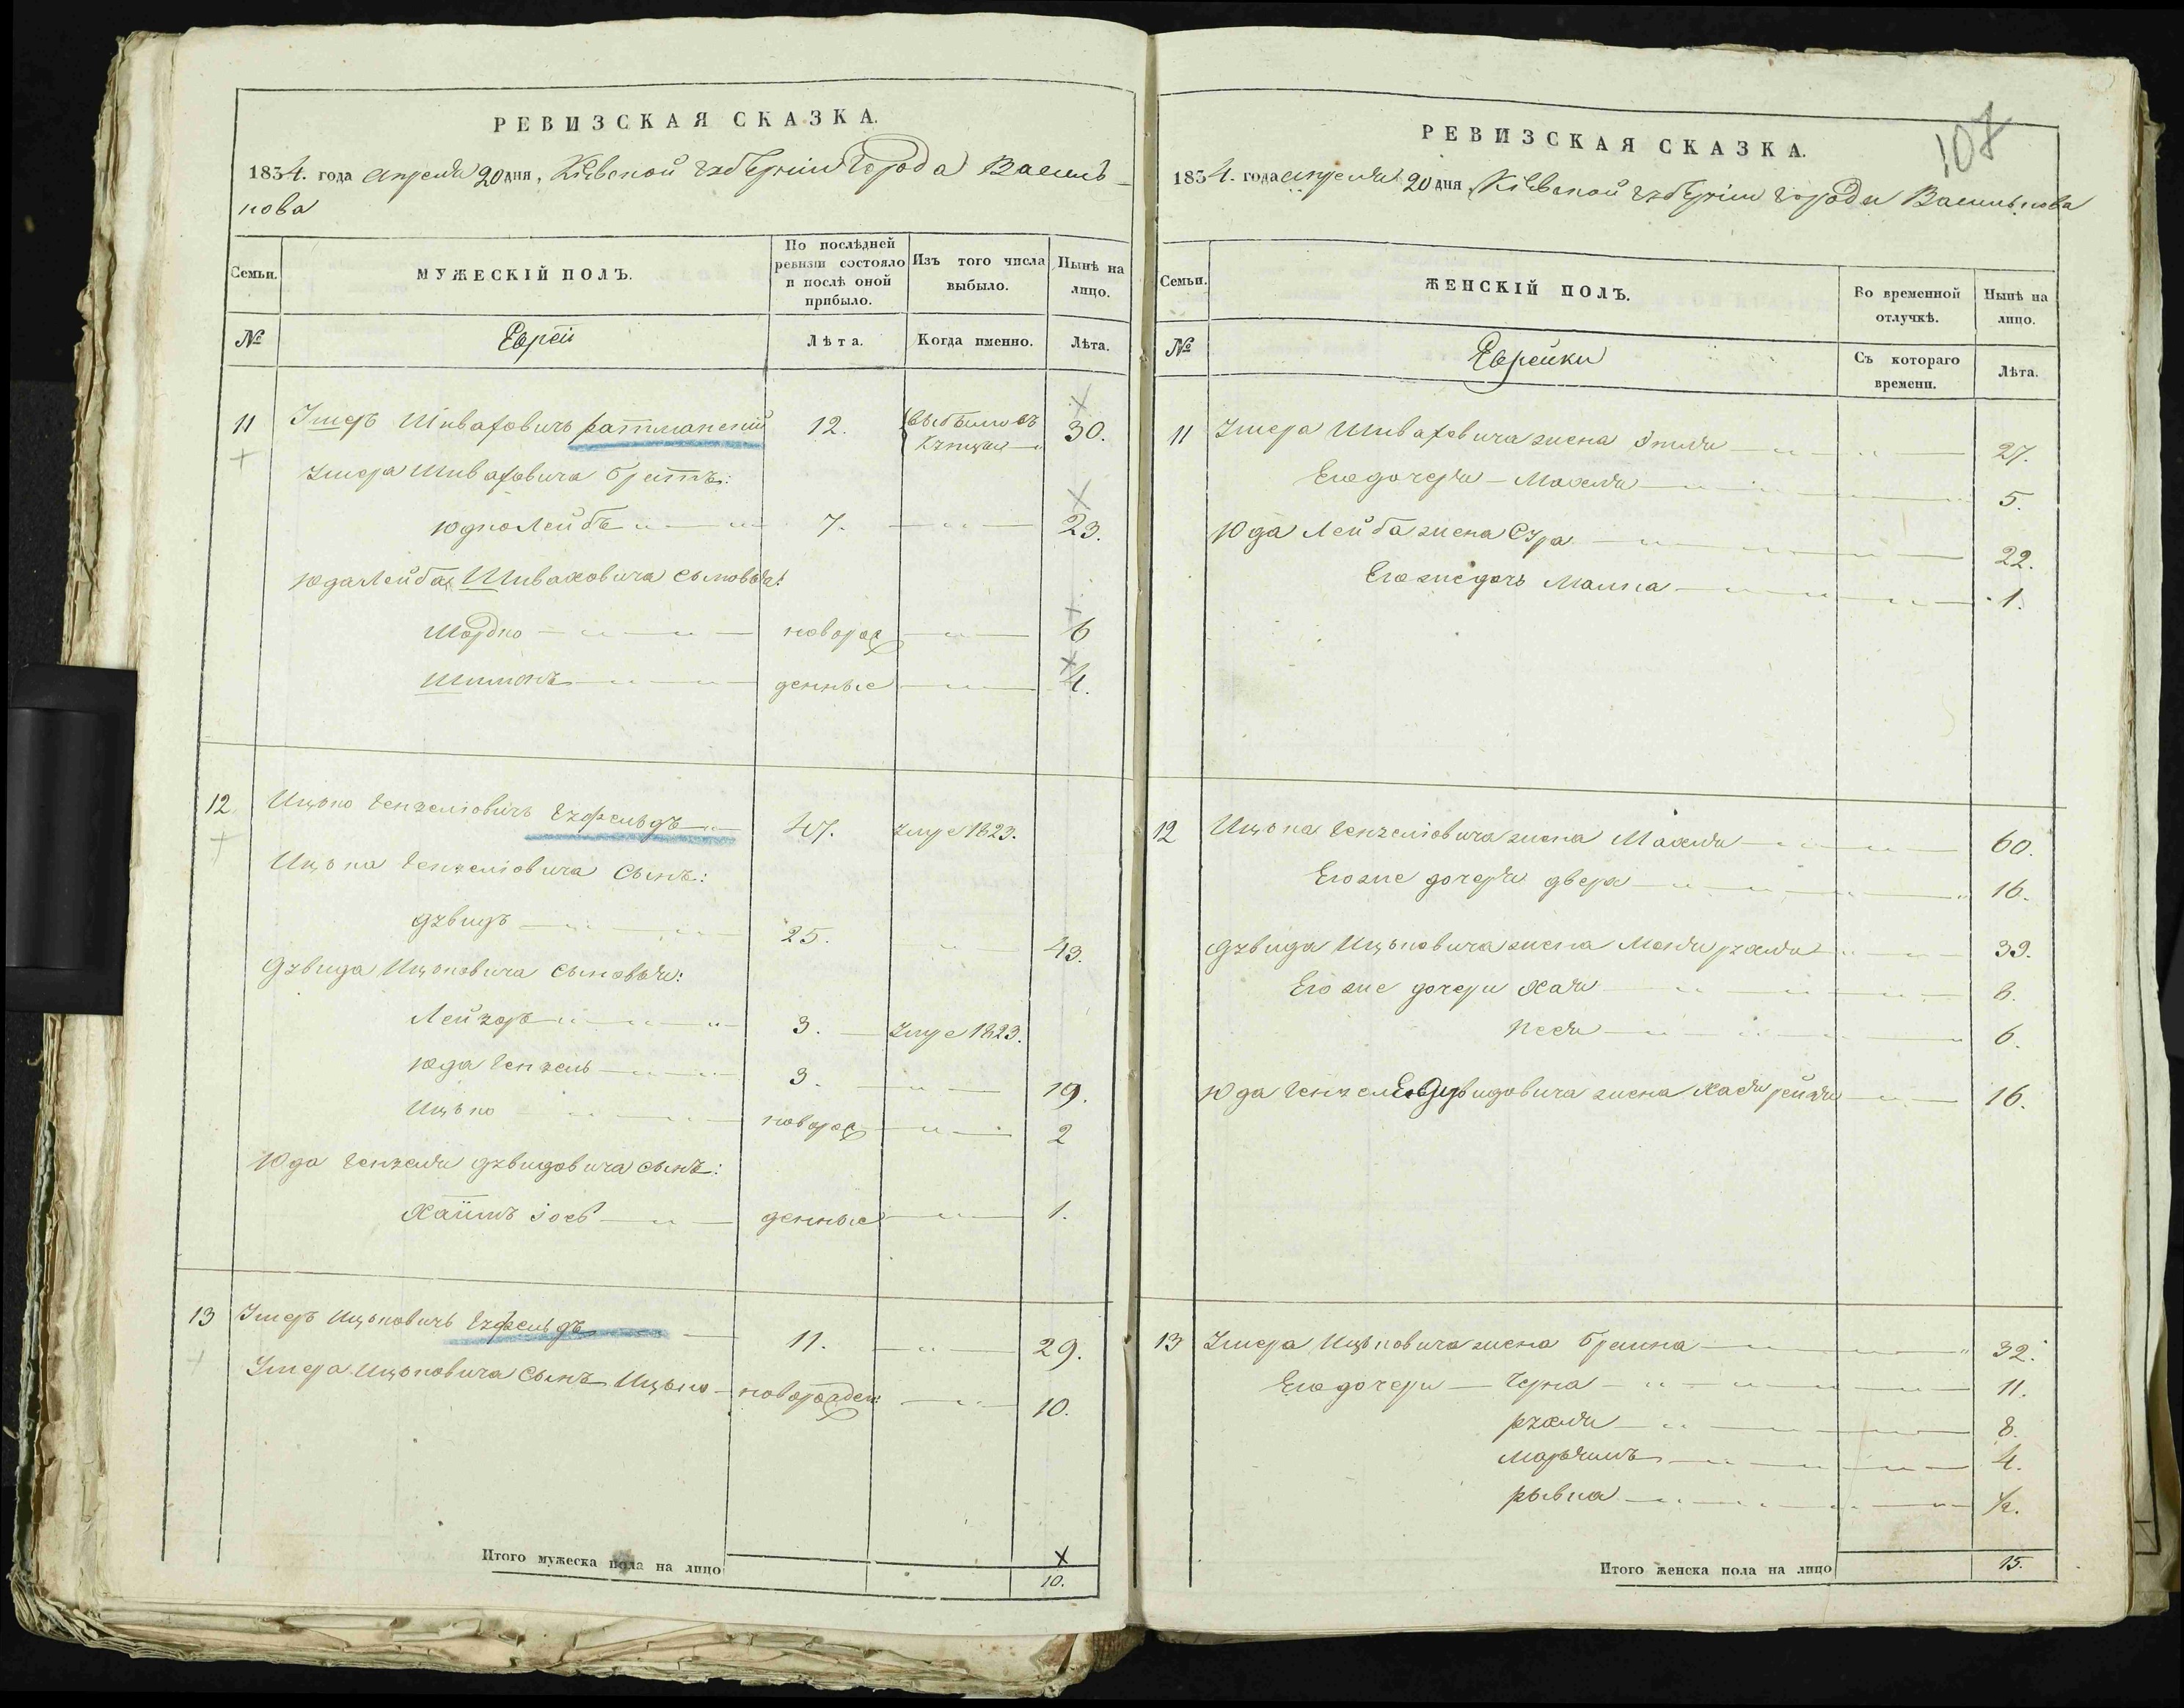 РЕВИЗСКАЯ СКАЗКА.
1834. года апреля 20 дня, Кіевской губерніи города Василь-
кова
Семьи.
МУЖЕСКІЙ ПОЛЪ.
По послѣдней ревизіи состояло и послѣ оной прибыло.
Изъ того числа выбыло.
Нынѣ на лицо.
№
Евреи
Лѣта.
Когда именно.
Лѣта.
11 12. выбылъ въ 30.
купцы
братъ:
Юдко Лейбъ 7. 23.
Юда Лейба Шиваховича сыновья:
Мордко новорож 6
Шимонъ денные 4.
12 Ицько 47. умре 1823.
Ицька сынъ:
Дувидъ 25. 43.
Дувида Ицьковича сыновья:
Лейзоръ 3. умре 1823.
Юда 3. 19.
Ицько новорож 2
Юда Дувидовича сынъ:
Хаимъ Іось денные 1.
13 Умеръ Ицьковичъ Гуфельдъ 11. 29.
Умера Ицьковича сынъ Ицько новорожден 10.
Итого мужеска пола на лицо
X
10.
107
РЕВИЗСКАЯ СКАЗКА.
1834. года апреля 20 дня Кіевской губерніи города Василькова
Семьи.
ЖЕНСКІЙ ПОЛЪ.
Во временной отлучкѣ.
Нынѣ на лицо.
№
Еврейки
Съ котораго времени.
Лѣта.
11 жена 27.
Его дочеря Махля 5.
Юда Лейба жена Сура 22.
Его же дочь Малка 1.
12 Ицька жена Махля 60.
Его же дочеря Двера 16.
Дувида Ицьковича жена Рухля 39.
Его же дочери Хая 8.
Песя 6.
Юда Дувидовича жена Хася Рейзя 16.
13 Умера Ицьковича жена Браина 32.
Его дочери Черна 11.
Рухля 8.
Марьямъ 4.
Рывка ½.
Итого женска пола на лицо
15.